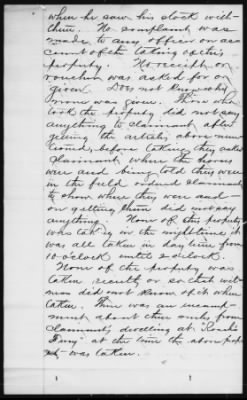 when he saw his stock with
them. No complaint was
made to any officer on ac
count of the taking of this
property. No receipt or
voucher was asked for or
given. Does not know why
none was given. Those who
took the property did not say
anything to claimant after
getting the articles above men
tioned, before taking they asked
claimant where the horses
were and being told they were
in the field ordered claimant
to show where they were and
on getting them did not say
anything. None of this property
was taken in the night time it
was all taken in day time from
10 o'clock until 2 o'clock.
None of the property was
taken secretly or so that cl
man did not know of it when
taken. There was an encamp
ment about three miles from
claimants dwelling at
Ferry" at the time the above prop
was taken.